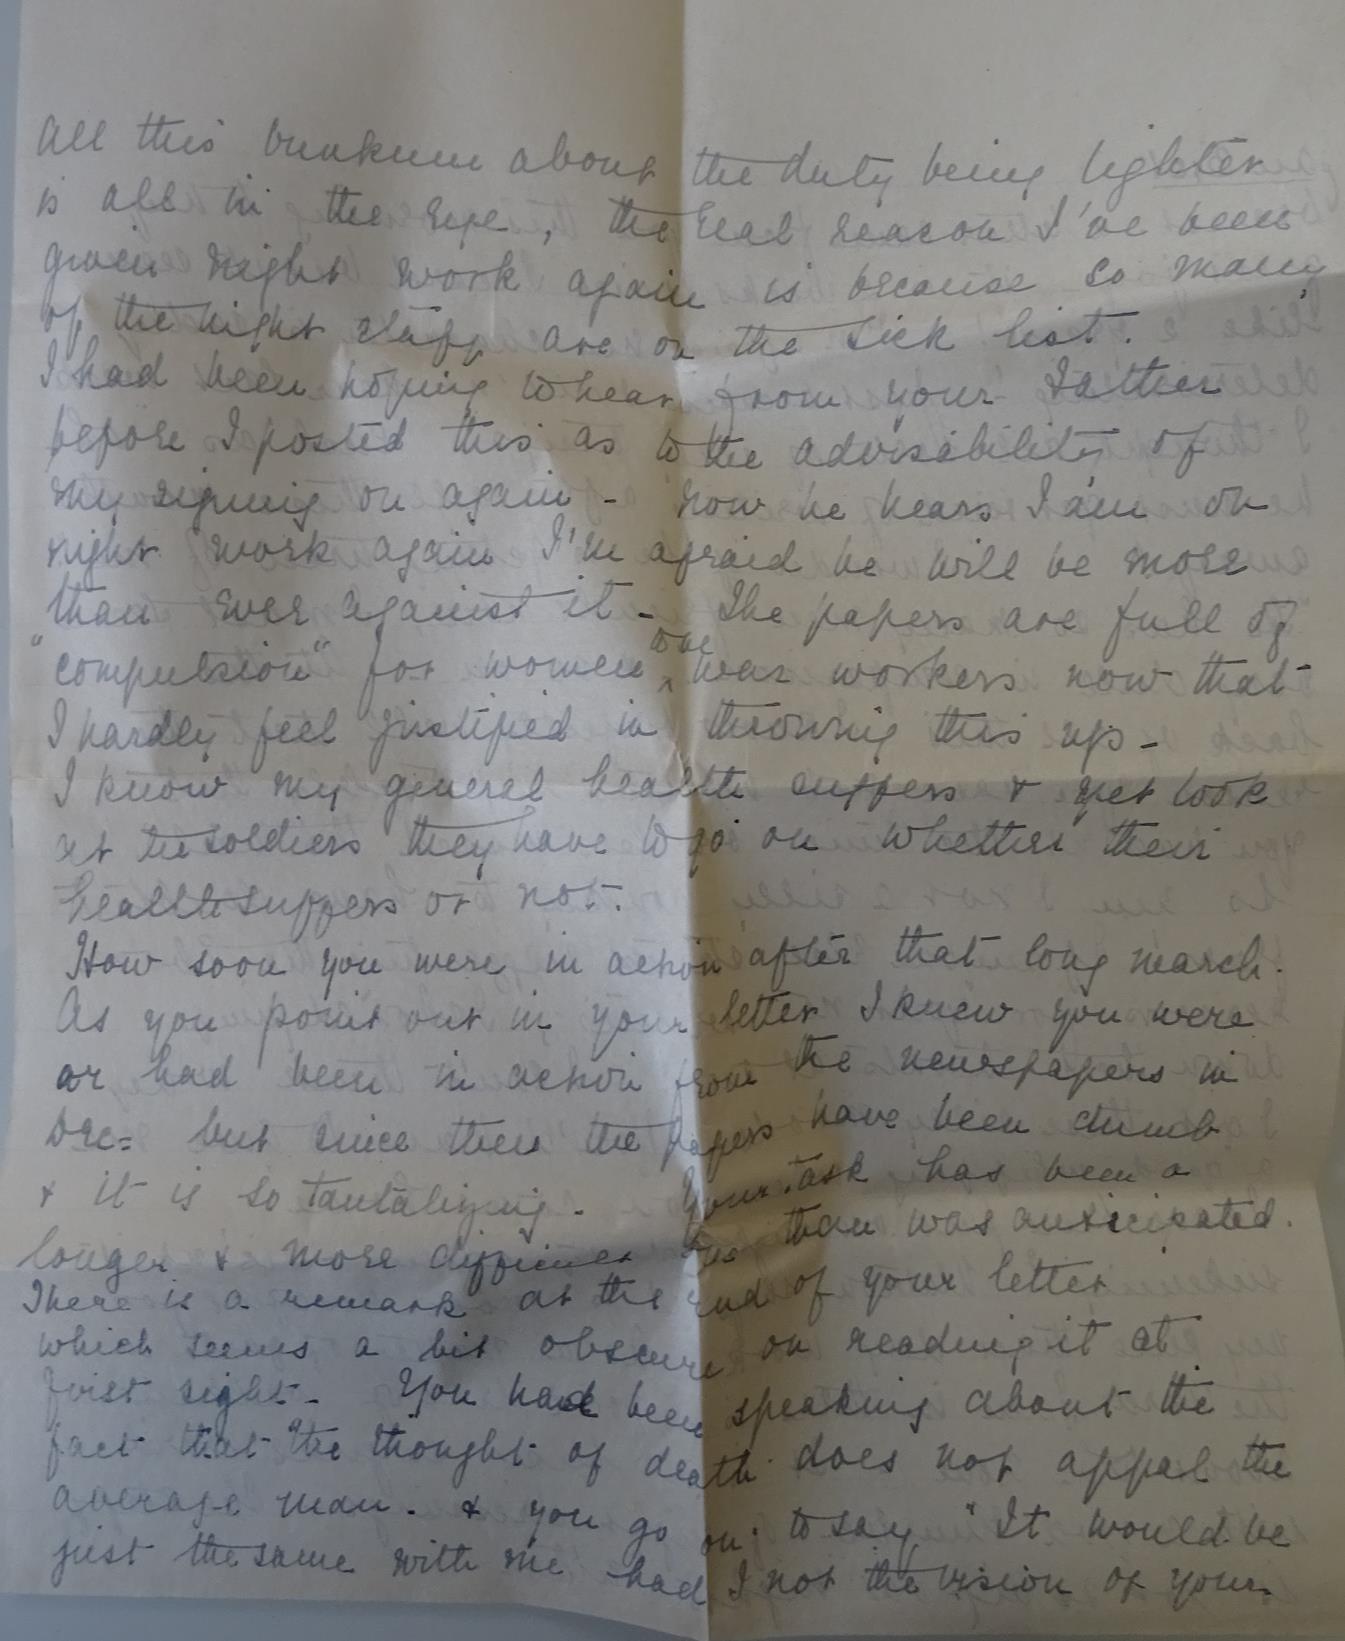 All this bunkum about the duty being lighter
is all in the eye, the real reason I've been
given night work again is because so many
of the night staff are on the sick list.
I had been hoping to hear from your Father
before I posted this as to the advisability of
my signing on again - now he hears I am on
night work again I'm afraid he will be more
than ever against it - The papers are full of
"compulsion" for women war workers now that
I hardly feel justified in throwing this up -
I know my general health suffers & yet look
at the soldiers they have to go on whether their
health suffers or not.
How soon you were in action after that long march.
As you point out in your letter I knew you were
or had been in action from the newspapers in
Dec= but since then the papers have been dumb
& it is so tantalizing. Your task has been a
longer & more difficult one than was anticipated.
There is a remark at the end of your letter
which seems a bit obscure on reading it at
first sight - You had been speaking about the
fact that the thought of death does not appal the
average man. & you go on to say "It would be
just the same with me had I not the vision of your